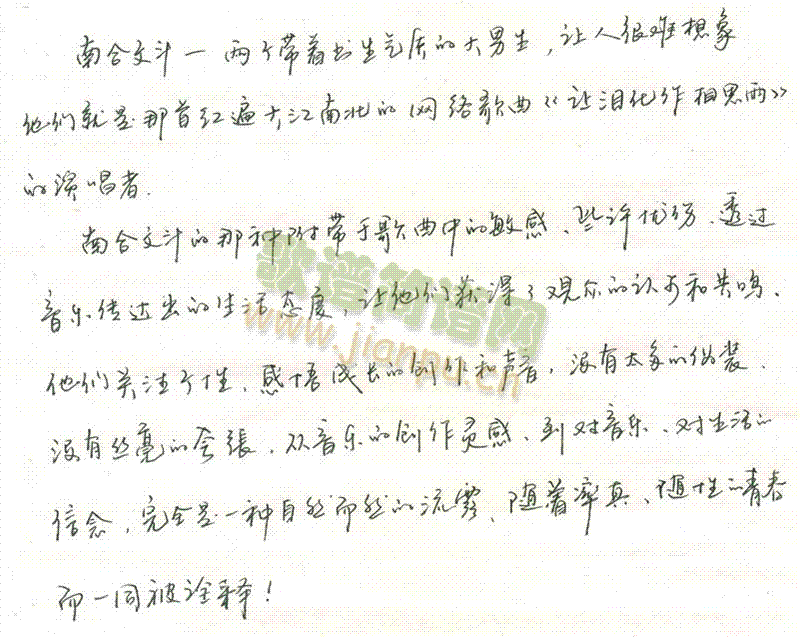 南合文斗一两个带着书生气质的大男生，让人很难想象
他们就是那首红遍大江南北的网络歌曲《让泪化作相思雨》
的演唱者.
南合文斗的那种附带于歌曲中的敏感、些许忧伤、透过
音乐传达出的生活态度，让他们获得了观众的认可和共鸣、
他们关注个性、感悟成长的创作和声音，没有太多的伪装、
没有丝毫的夸張、从音乐的创作灵感、到对音乐、对生活的
信念，完全是一种自然而然的流露、随着率真、随性的青春
而一同被诠释！
歌谱简谱网
www.jianpu.cn